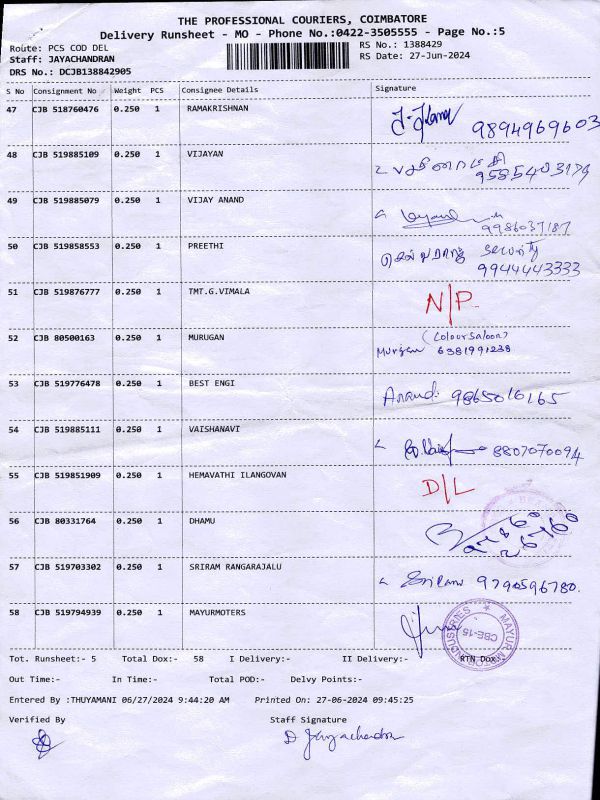 THE PROFESSIONAL COURIERS, COIMBATORE
Delivery Runsheet - MO - Phone No.:0422-3505555 - Page No.:5
Route: PCS COD DEL
RS No.: 1388429
Staff: JAYACHANDRAN
RS Date: 27-Jun-2024
DRS No.: DCJB138842905
S No Consignment No Weight PCS Consignee Details Signature
47 CJB 518760476 0.250 1 RAMAKRISHNAN 9894969603
48 CJB 519885109 0.250 1 VIJAYAN 9585403179
49 CJB 519885079 0.250 1 VIJAY ANAND 9986037187
50 CJB 519858553 0.250 1 PREETHI செல்வராஜ் Security
9944443333
51 CJB 519876777 0.250 1 TMT.G.VIMALA N/P
52 CJB 80500163 0.250 1 MURUGAN (Colour Saloon)
Murugan 6381991238
53 CJB 519776478 0.250 1 BEST ENGI Anand 9865016165
54 CJB 519885111 0.250 1 VAISHANAVI 8807070094
55 CJB 519851909 0.250 1 HEMAVATHI ILANGOVAN D/L
56 CJB 80331764 0.250 1 DHAMU
57 CJB 519703302 0.250 1 SRIRAM RANGARAJALU Sriram 9790596780.
58 CJB 519794939 0.250 1 MAYURMOTERS
MAYUR MOTOR INDUSTRIES
CBE-15
Tot. Runsheet:- 5 Total Dox:- 58 I Delivery:- II Delivery:- RTN Dox:-
Out Time:- In Time:- Total POD:- Delvy Points:-
Entered By :THUYAMANI 06/27/2024 9:44:20 AM Printed On: 27-06-2024 09:45:25
Verified By Staff Signature
D Jayachandran